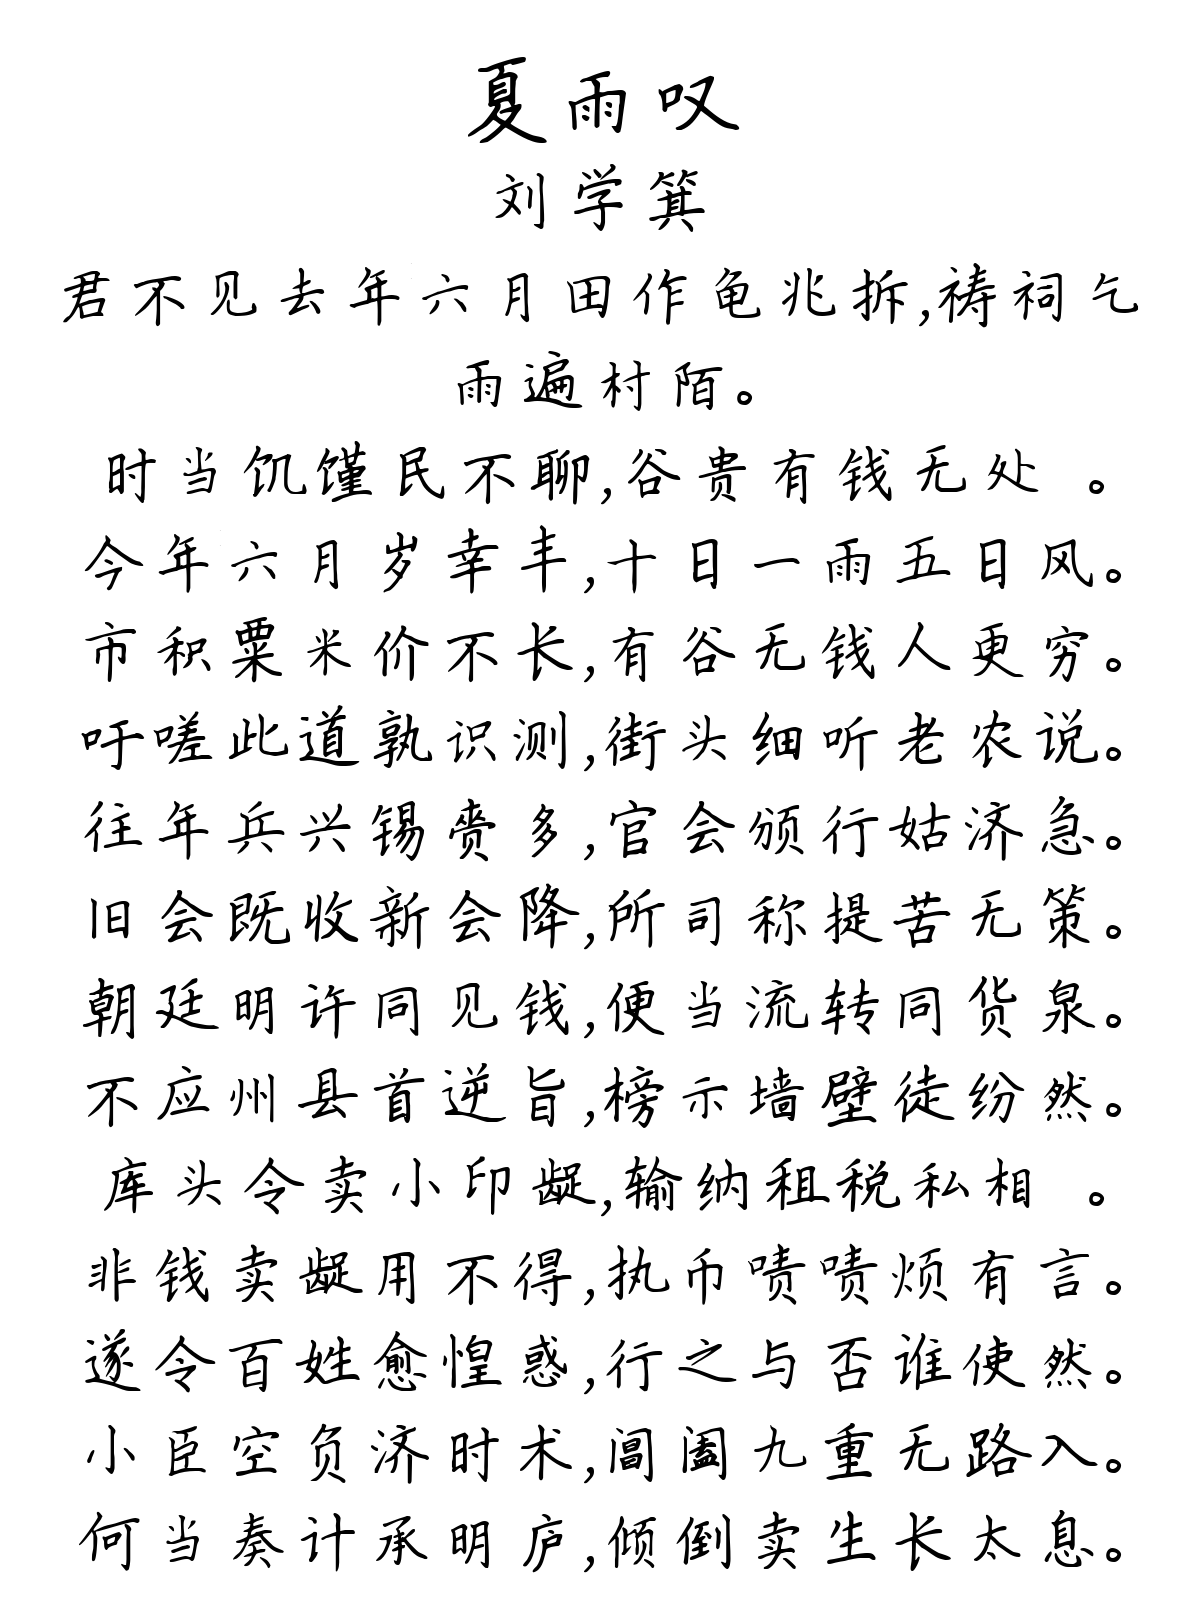 夏雨叹
刘学箕
君不见去年六月田作龟兆拆,祷祠乞
雨遍村陌。
时当饥馑民不聊,谷贵有钱无处 。
今年六月岁幸丰,十日一雨五日风。
市积粟米价不长,有谷无钱人更穷。
吁嗟此道孰识测,街头细听老农说。
往年兵兴锡赉多,官会颁行姑济急。
旧会既收新会降,所司称提苦无策。
朝廷明许同见钱,便当流转同货泉。
不应州县首逆旨,榜示墙壁徒纷然。
库头令卖小印龊,输纳租税私相 。
非钱卖龊用不得,执币啧啧烦有言。
遂令百姓愈惶惑,行之与否谁使然。
小臣空负济时术,阊阖九重无路入。
何当奏计承明庐,倾倒卖生长太息。